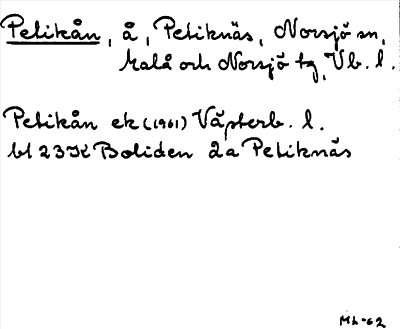 Petikån, å, Petiknäs, Norsjö sn,
Malå och Norsjö tg, Vb. l.
Petikån ek (1961) Västerb. l.
bl 23K Boliden 2a Petiknäs
Mh-62